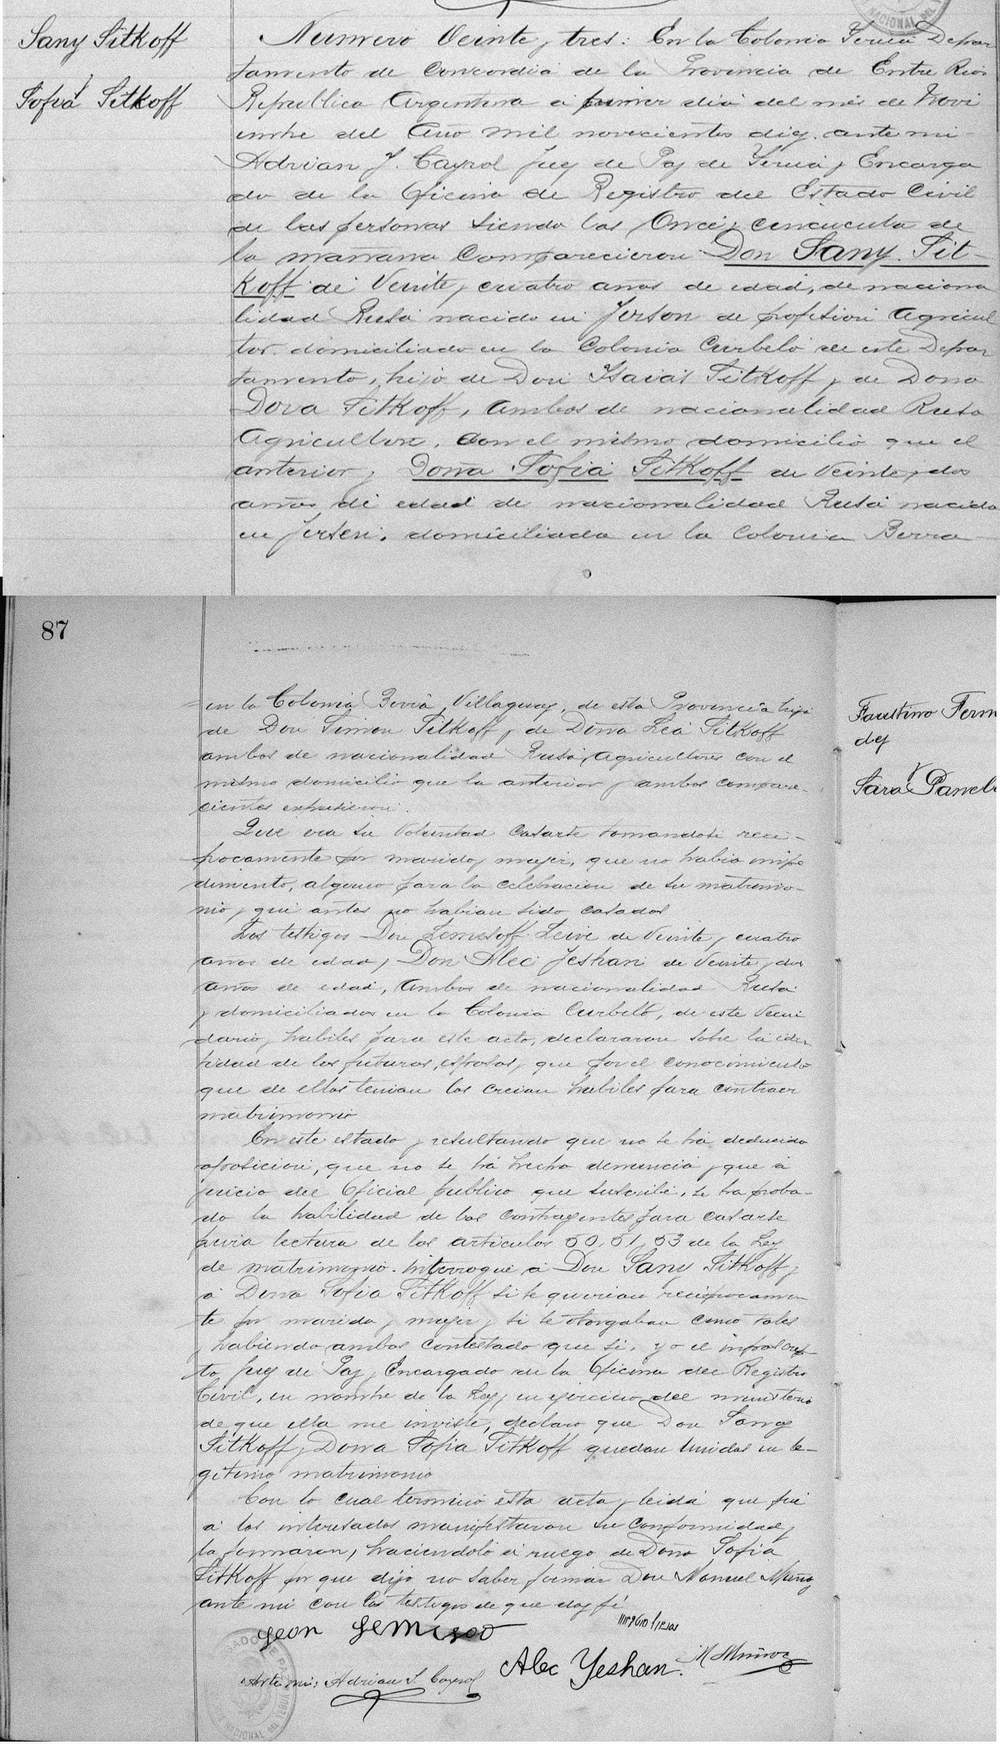 Sany Sitkoff
y
Sofia Sitkoff
Numero Veinte y tres: En la Colonia Yeruá Depar
tamento de Concordia de la Provincia de Entre Rios
Republica Argentina á primer dia del mes de Novi
embre del Año mil novecientos diez, ante mi
Adrian J. Cayrol Juez de Paz de Yeruá y Encarga
do de la Oficina de Registro del Estado Civil
de las personas siendo las Once y cincuenta de
la mañana Comparecieron Don Sany Sit-
Koff de Veinte y cuatro años de edad, de naciona
lidad Rusa nacido en Jerson de profesion Agricul
tor domiciliado en la Colonia Curbelo de este Depar
tamento, hijo de Don Isaias Sitkoff y de Doña
Dora Sitkoff, Ambos de nacionalidad Rusa
Agricultores, con el mismo domicilio que el
anterior y Doña Sofia Sitkoff de Veinte y dos
años de edad de nacionalidad Rusa nacida
en Jerson, domiciliada en la Colonia Berro
87
en la Colonia Villaguay, de esta Provincia hija
de Don Simon Sitkoff y de Doña Lea Sitkoff
ambos de nacionalidad Rusa, Agricultores con el
mismo domicilio que la anterior y ambos compare-
cientes expusieron:
Que era su Voluntad casarse tomandose reci-
procamente por marido y mujer, que no habia impe
dimento, alguno para la celebracion de su matrimo-
nio y que antes no habian sido casados
Los testigos Don Leive de Veinte y cuatro
años de edad y Don Alec Jeshan de Veinte y dos
años de edad, Ambos de nacionalidad Rusa
y domiciliados en la Colonia Curbelo, de este Vecin
dario, habiles para este acto, declararon sobre la iden
tidad de los futuros esposos y que por el conocimiento
que de ellos tenian los creian habiles para contraer
matrimonio
En este estado y resultando que no se ha deducido
oposicion, que no se ha hecho denuncia y que á
juicio del Oficial publico que suscribe, se ha proba-
do la habilidad de los contrayentes para casarse
previa lectura de los articulos 50, 51, 53 de la Ley
de matrimonio. Interrogué á Don Sany Sitkoff y
á Doña Sofia Sitkoff si se querian reciprocamen
te por marido y mujer y si se otorgaban como tales
y habiendo ambos contestado que si, yo el infrascrip
to, Juez de Paz y Encargado de la Oficina del Registro
Civil, en nombre de la Ley y en ejercicio del ministerio
de que ella me inviste, declaro que Don Sany
Sitkoff y Doña Sofia Sitkoff quedan Unidos en le-
gitimo matrimonio
Con lo cual terminó esta acta y leida que fué
á los interesados manifestaron su conformidad y
la firmaron, haciendolo á ruego de Doña Sofia
Sitkoff por que dijo no saber firmar Don Manuel Muñoz
ante mi con los testigos de que doy fé
Alec Yeshan. M Muñoz
Ante mi: Adrian J. Cayrol
Faustino Fern
dez
y
Sara